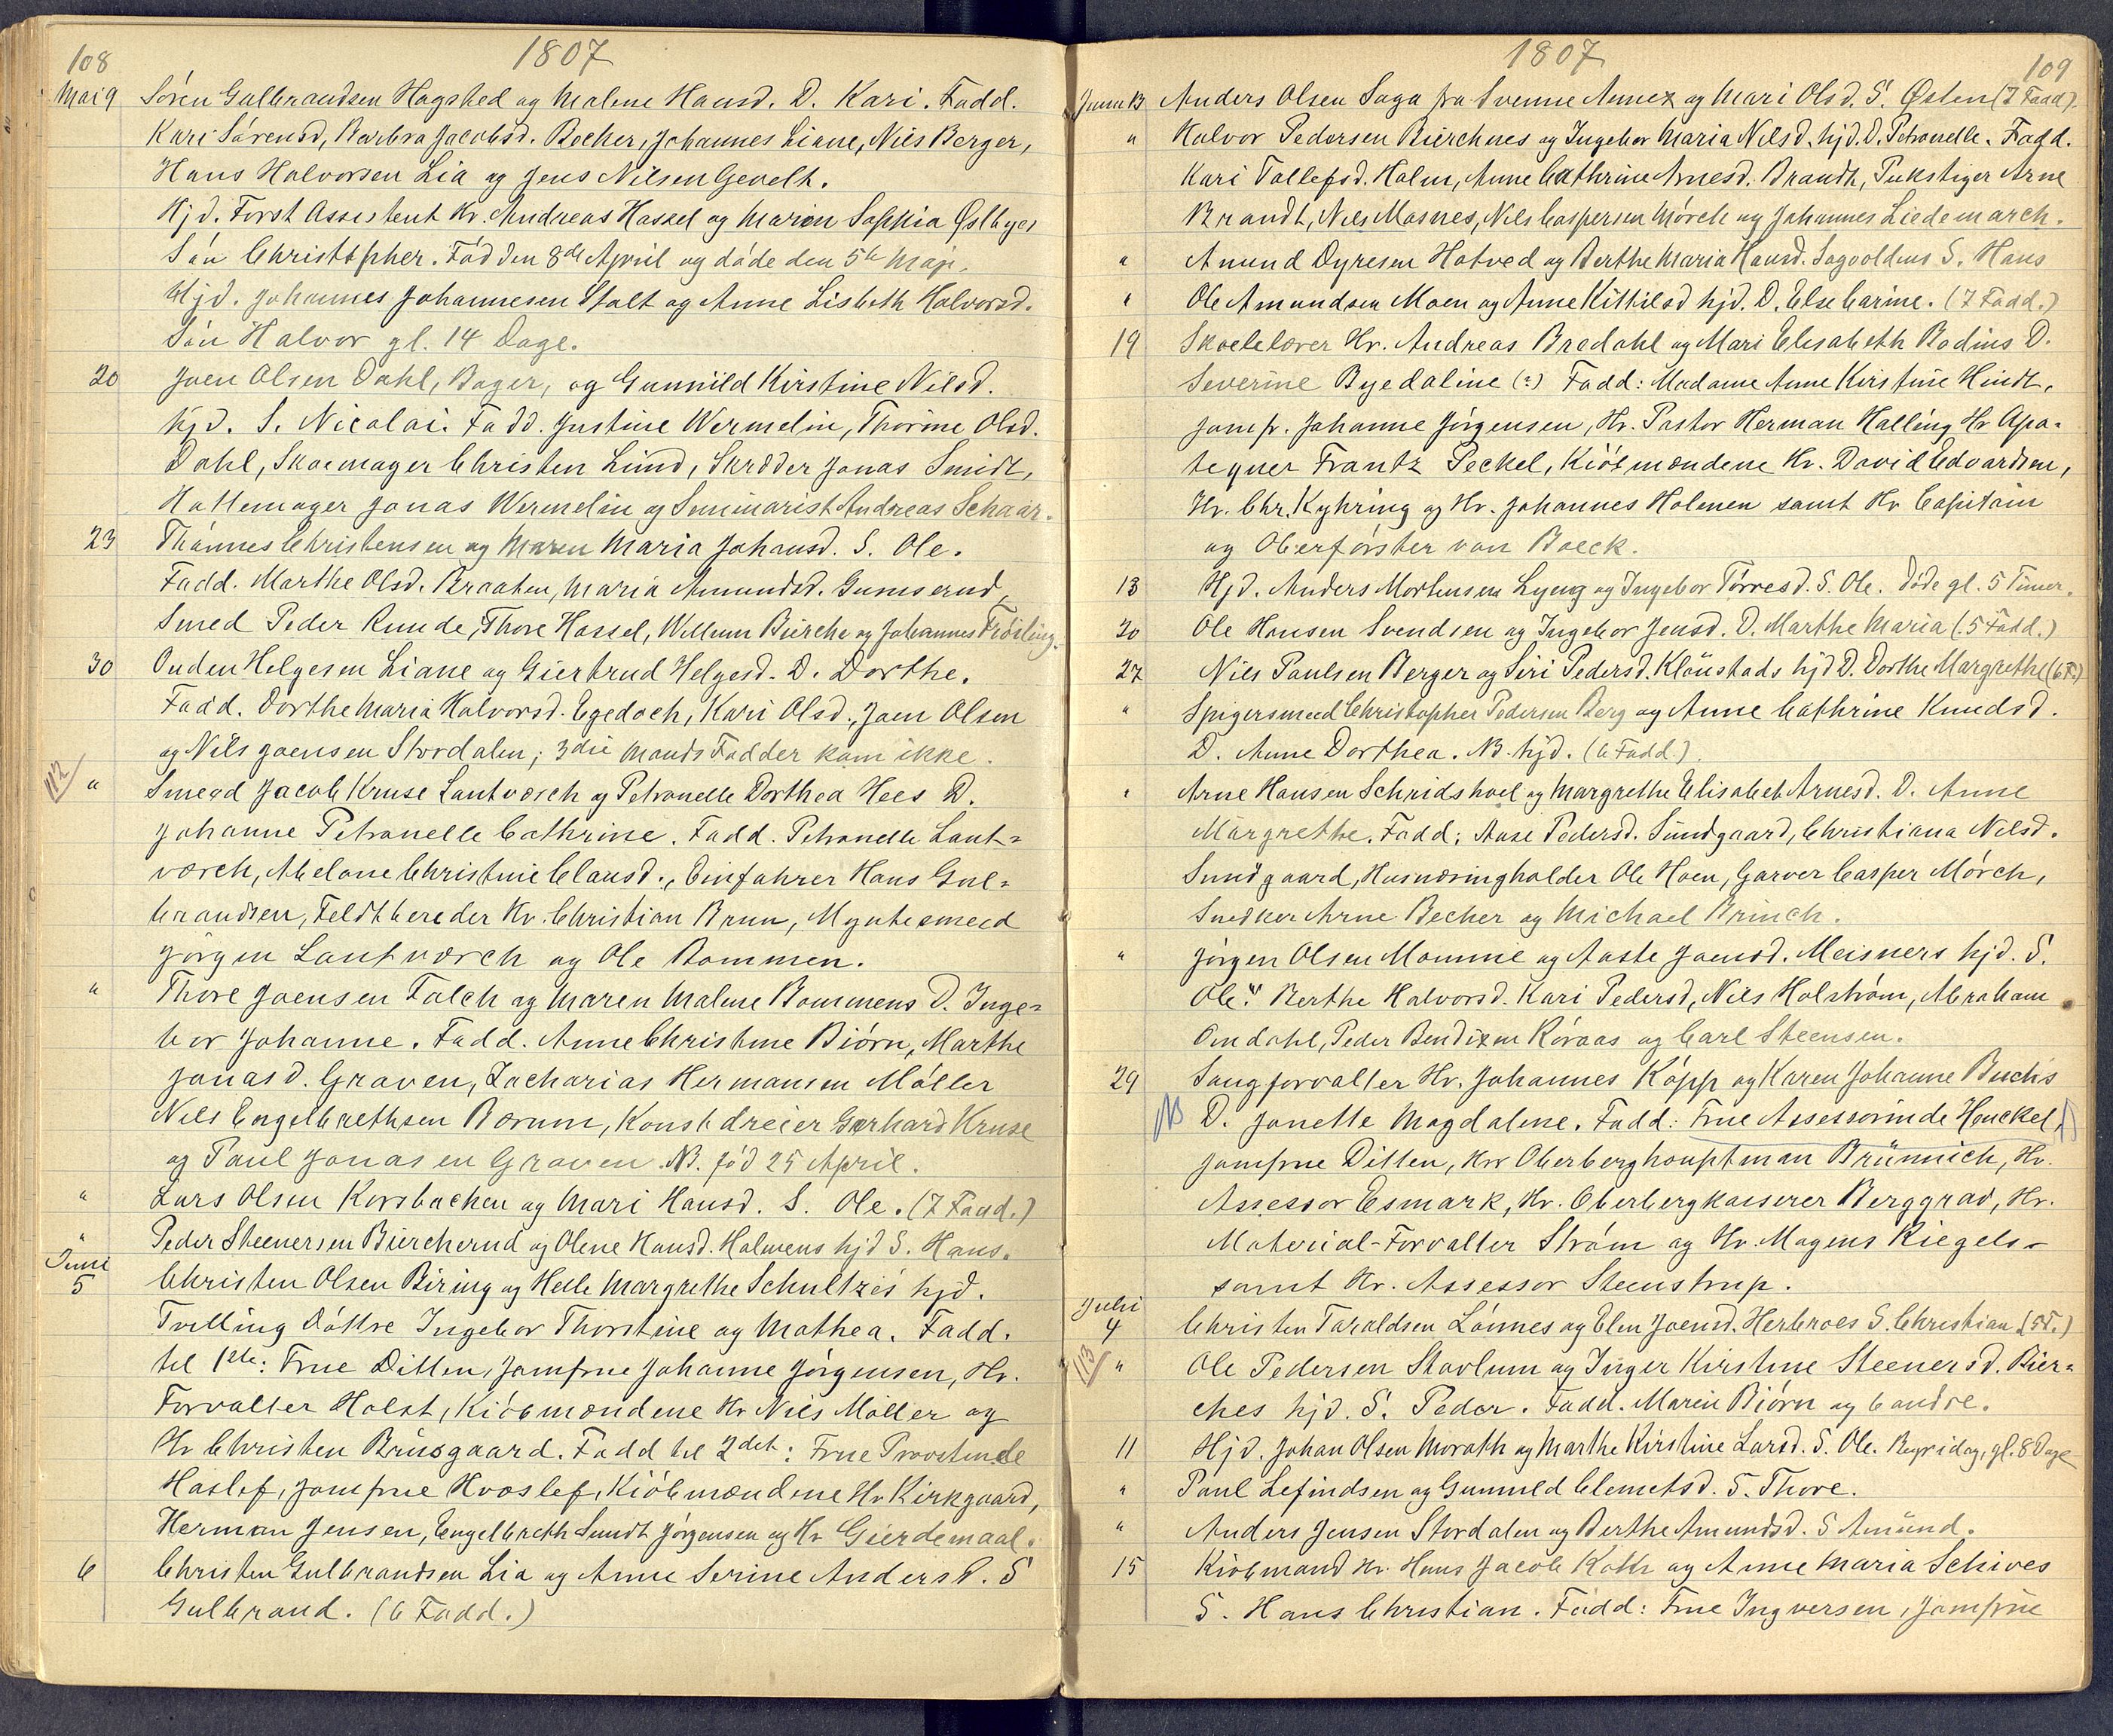 108
1807
Mai 9 Sören Gulbrandsen Hagshed og Malene Hansd. D. Kari. Fadd.
Kari Sörensd, Barbra Jacobsd. Becker, Johannes Liane, Nils Berger,
Hans Halvorsen Lia og Jens Nilsen Gevelt.
Hjd. Forst Assistent Hr. Andreas Hassel og Maren Sophia Østbyes
Sön Christopher. Föd den 8de April og döde den 5te Maji.
Hjd. Johannes Johannesen Stalt og Anne Lisbeth Halvorsd.
Sön Halvor gl. 14 Dage.
20 Joen Olsen Dahl, Bager, og Gunnild Kirstine Nilsd.
hjd. S. Nicolai. Fadd. Justine Wermelin, Thorine Olsd.
Dahl, Skoemager Christen Lund, Skrædder Jonas Smidt,
Hattemager Jonas Wermelin og Seminarist Andreas Schaar.
23 Thönnes Christensen og Maren Maria Johansd. S. Ole.
Fadd. Marthe Olsd. Braaten, Maria Amundsd. Gunserud,
Smed Peder Runde, Thore Hassel, Willum Bierche og Johannes Frösling.
30 Ouden Helgesen Liane og Giertrud Helgesd. D. Dorthe.
Fadd. Dorthe Maria Halvorsd. Egedoch, Kari Olsd., Joen Olsen
og Nils Joensen Stordalen; 3die Mands Fadder kom ikke.
112
" Smed Jacob Kruse Lantværch og Petronelle Dorthea Hees D.
Johanne Petronelle Cathrine. Fadd. Petronelle Lant=
værch, Abelone Christine Clausd., Einfahrer Hans Gul=
brandsen, Feldtbereder Hr. Christian Brun, Myntesmed
Jörgen Lantværch og Ole Bommen.
" Thore Joensen Falch og Maren Malene Bommens D. Inge=
bor Johanne. Fadd. Anne Christine Biörn, Marthe
Jonasd. Graven, Zacharias Hermansen Möller
Nils Engelbrethsen Bærum, Konstdreier Gerhard Kruse
og Paul Jonasen Graven. NB. föd 25 April.
" Lars Olsen Korsbacken og Mari Hansd. S. Ole. (7 Fadd.)
" Peder Steenersen Biercherud og Olene Hansd. Holmens hjd S. Hans.
Juni
5 Christen Olsen Biring og Helle Margrethe Schultzes hjd.
Tvilling Döttre Ingebor Thorstine og Mathea. Fadd.
til 1ste: Frue Ditten, Jomfrue Johanne Jörgensen, Hr.
Forvalter Holst, Kiöbmændene Hr Niels Möller og
Hr Christen Bruusgaard. Fadd til 2det: Frue Provstinde
Haslef, Jomfrue Hvoslef, Kiöbmændene Hr Kirkgaard,
Herman Jensen, Engelbreth Sundt Jörgensen og Hr Gierdemaal.
6 Christen Gulbrandsen Lia og Anne Serine Andersd. S
Gulbrand. (6 Fadd.)
1807
109
Juni 13 Anders Olsen Saga fra Svenne Annex og Mari Olsd. S. Østen (7 Fadd).
" Halvor Pedersen Bierchnes og Ingebor Maria Nilsd. hjd. D. Petronelle. Fadd.
Kari Tollefsd. Holm, Anne Cathrine Arnesd. Brandt, Pukstiger Arne
Brandt, Niels Masnes, Nils Caspersen Mörch og Johannes Liedemarch.
" Amund Dyresen Hotved og Berthe Maria Hansd. Sagvoldens S. Hans
" Ole Amundsen Moen og Anne Kittilsd hjd. D. Else Carine. (7 Fadd.)
19 Skolelærer Hr. Andreas Bredahl og Mari Elisabeth Bodins D.
Severine Byedaline (?) Fadd: Madame Anne Kirstine Hindt,
Jomfr. Johanne Jörgensen, Hr. Pastor Herman Halling Hr Apo=
teqver Frantz Peckel, Kiöbmændene Hr. David Edvardsen,
Hr. Chr. Kyhring og Hr. Johannes Holmen samt Hr Capitain
og Oberförster von Boeck.
13 Hjd. Anders Mortensen Lyeng og Ingebor Törresd. S. Ole. döde gl. 5 Timer.
20 Ole Hansen Svendsen og Ingebor Jensd. D. Marthe Maria (5 Fadd.)
27 Nils Paulsen Berger og Siri Pedersd. Klöustads hjd D. Dorthe Margrethe (6 F.)
" Spigersmed Christopher Pedersen Berg og Anne Cathrine Knudsd.
D. Anne Dorthea. NB. hjd. (6 Fadd.)
" Arne Hansen Schridshoel og Margrethe Elisabeth Arnesd. D. Anne
Margrethe. Fadd: Aase Pedersd. Sundgaard, Christiana Nilsd.
Sundgaard, Husnæringholder Ole Hoen, Garver Casper Mörch,
Snedker Arne Becher og Michael Brinch.
" Jörgen Olsen Momme og Aaste Joensd. Meisners hjd. S.
Ole. Berthe Halvorsd. Kari Pedersd, Nils Holström, Abraham
Omdahl, Peder Bendixen Röraas og Carl Steensen.
29 Saugforvalter Hr. Johannes Köpp og Karen Johanne Buchs
NB D. Janette Magdalene. Fadd: Frue Assessorinde Henckel,
Jomfrue Ditten, Herr Oberberghauptman Brünnich, Hr.
Assessor Esmark, Hr. Oberbergkasserer Berggrav, Hr.
Material-Forvalter Ström og Hr. Mogens Riegels-
samt Hr. Assessor Steenstrup.
Julii
4 Christen Taraldsen Lönnes og Elen Joensd. Herbroes S. Christian. (5 F.)
113
" Ole Pedersen Stavlum og Inger Kirstine Steenersd. Bier=
ches hjd. S. Peder. Fadd. Maren Biörn og 6 andre.
11 Hjd. Johan Olsen Morath og Marthe Kirstine Larsd. S. Ole. Begr. idag, gl. 8 Dage
" Paul Lefindsen og Gunnild Clemetsd. S. Thore.
" Anders Jensen Stordalen og Berthe Amundsd. S Amund.
15 Kiöbmand Hr. Hans Jacob Koth og Anne Maria Schives
S. Hans Christian. Fadd: Frue Ingversen, Jomfrue